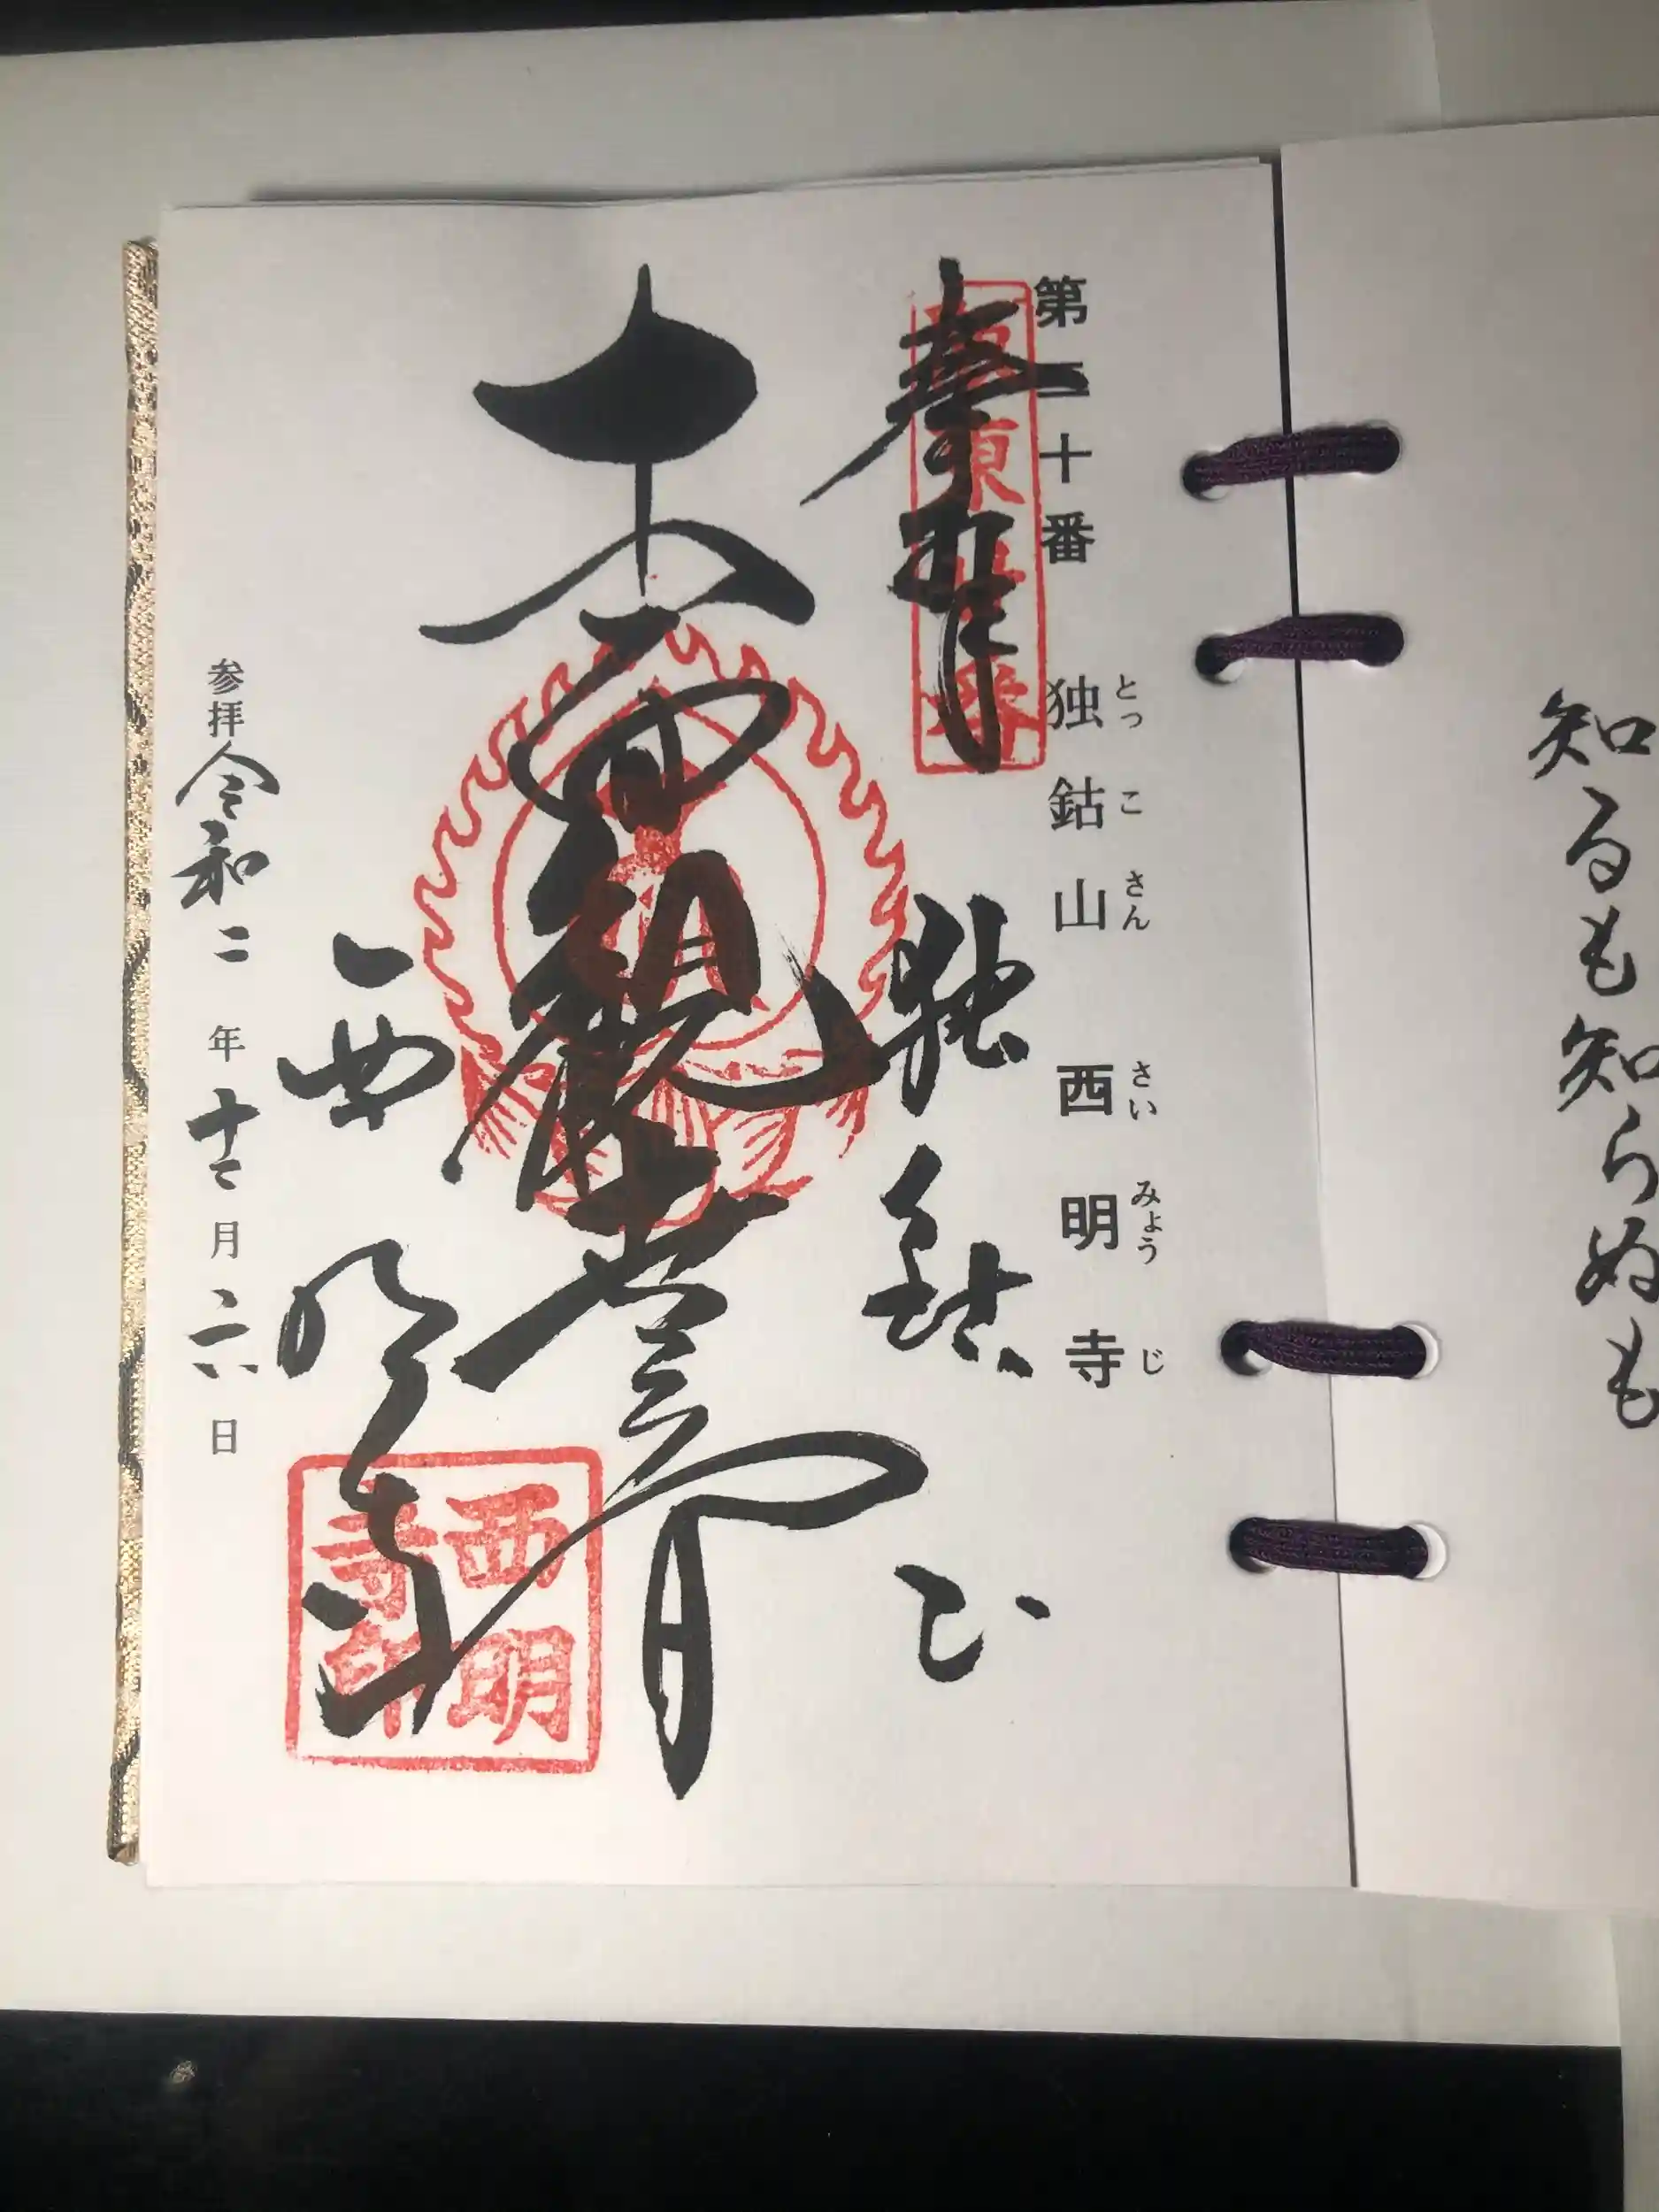 知るも知らぬも
第二十番 独鈷山 西明寺
とっこさん さいみょうじ
奉拝
坂東二十番
独鈷山
十一面観世音
西明寺
西明寺印
参拝 令和二年十二月二六日